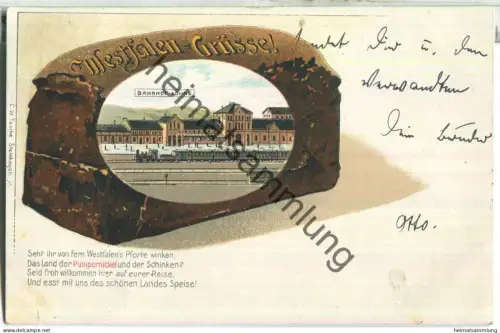 Westfalen-Grüsse!
BAHNHOF LÖHNE
sendet Dir u. den
Verwandten
Dein Bruder
Otto.
Seht ihr von fern Westfalen's Pforte winken,
Das Land der Pumpernickel und der Schinken?
Seid froh willkommen hier auf eurer Reise,
Und esst mit uns des schönen Landes Speise!
heimatsammlung.de